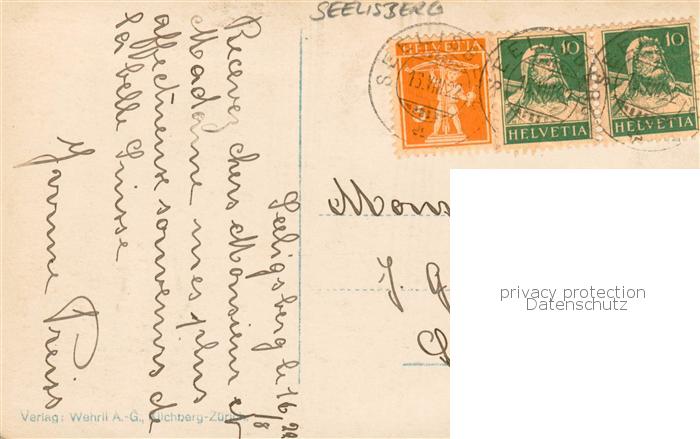 SEELISBERG
HELVETIA
10
HELVETIA
10
HELVETIA
13.VIII.22
Seeligsberg le 16/8 22
Recevez chers Monsieur et
Madame mes plus
affectueux souvenirs de
la belle Suisse
Preiss
Mons
J. G
privacy protection
Datenschutz
Verlag: Wehrli A.-G., Kilchberg-Zürich